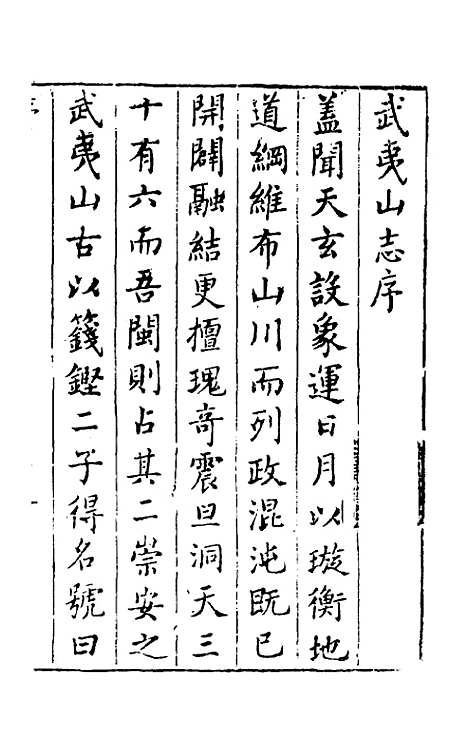 武夷山志序
蓋聞天玄設象運日月以璇衡地
道綱維布山川而列政混沌既已
開闢融結更擅瑰奇震旦洞天三
十有六而吾閩則占其二崇安之
武夷山古以籛鏗二子得名號曰